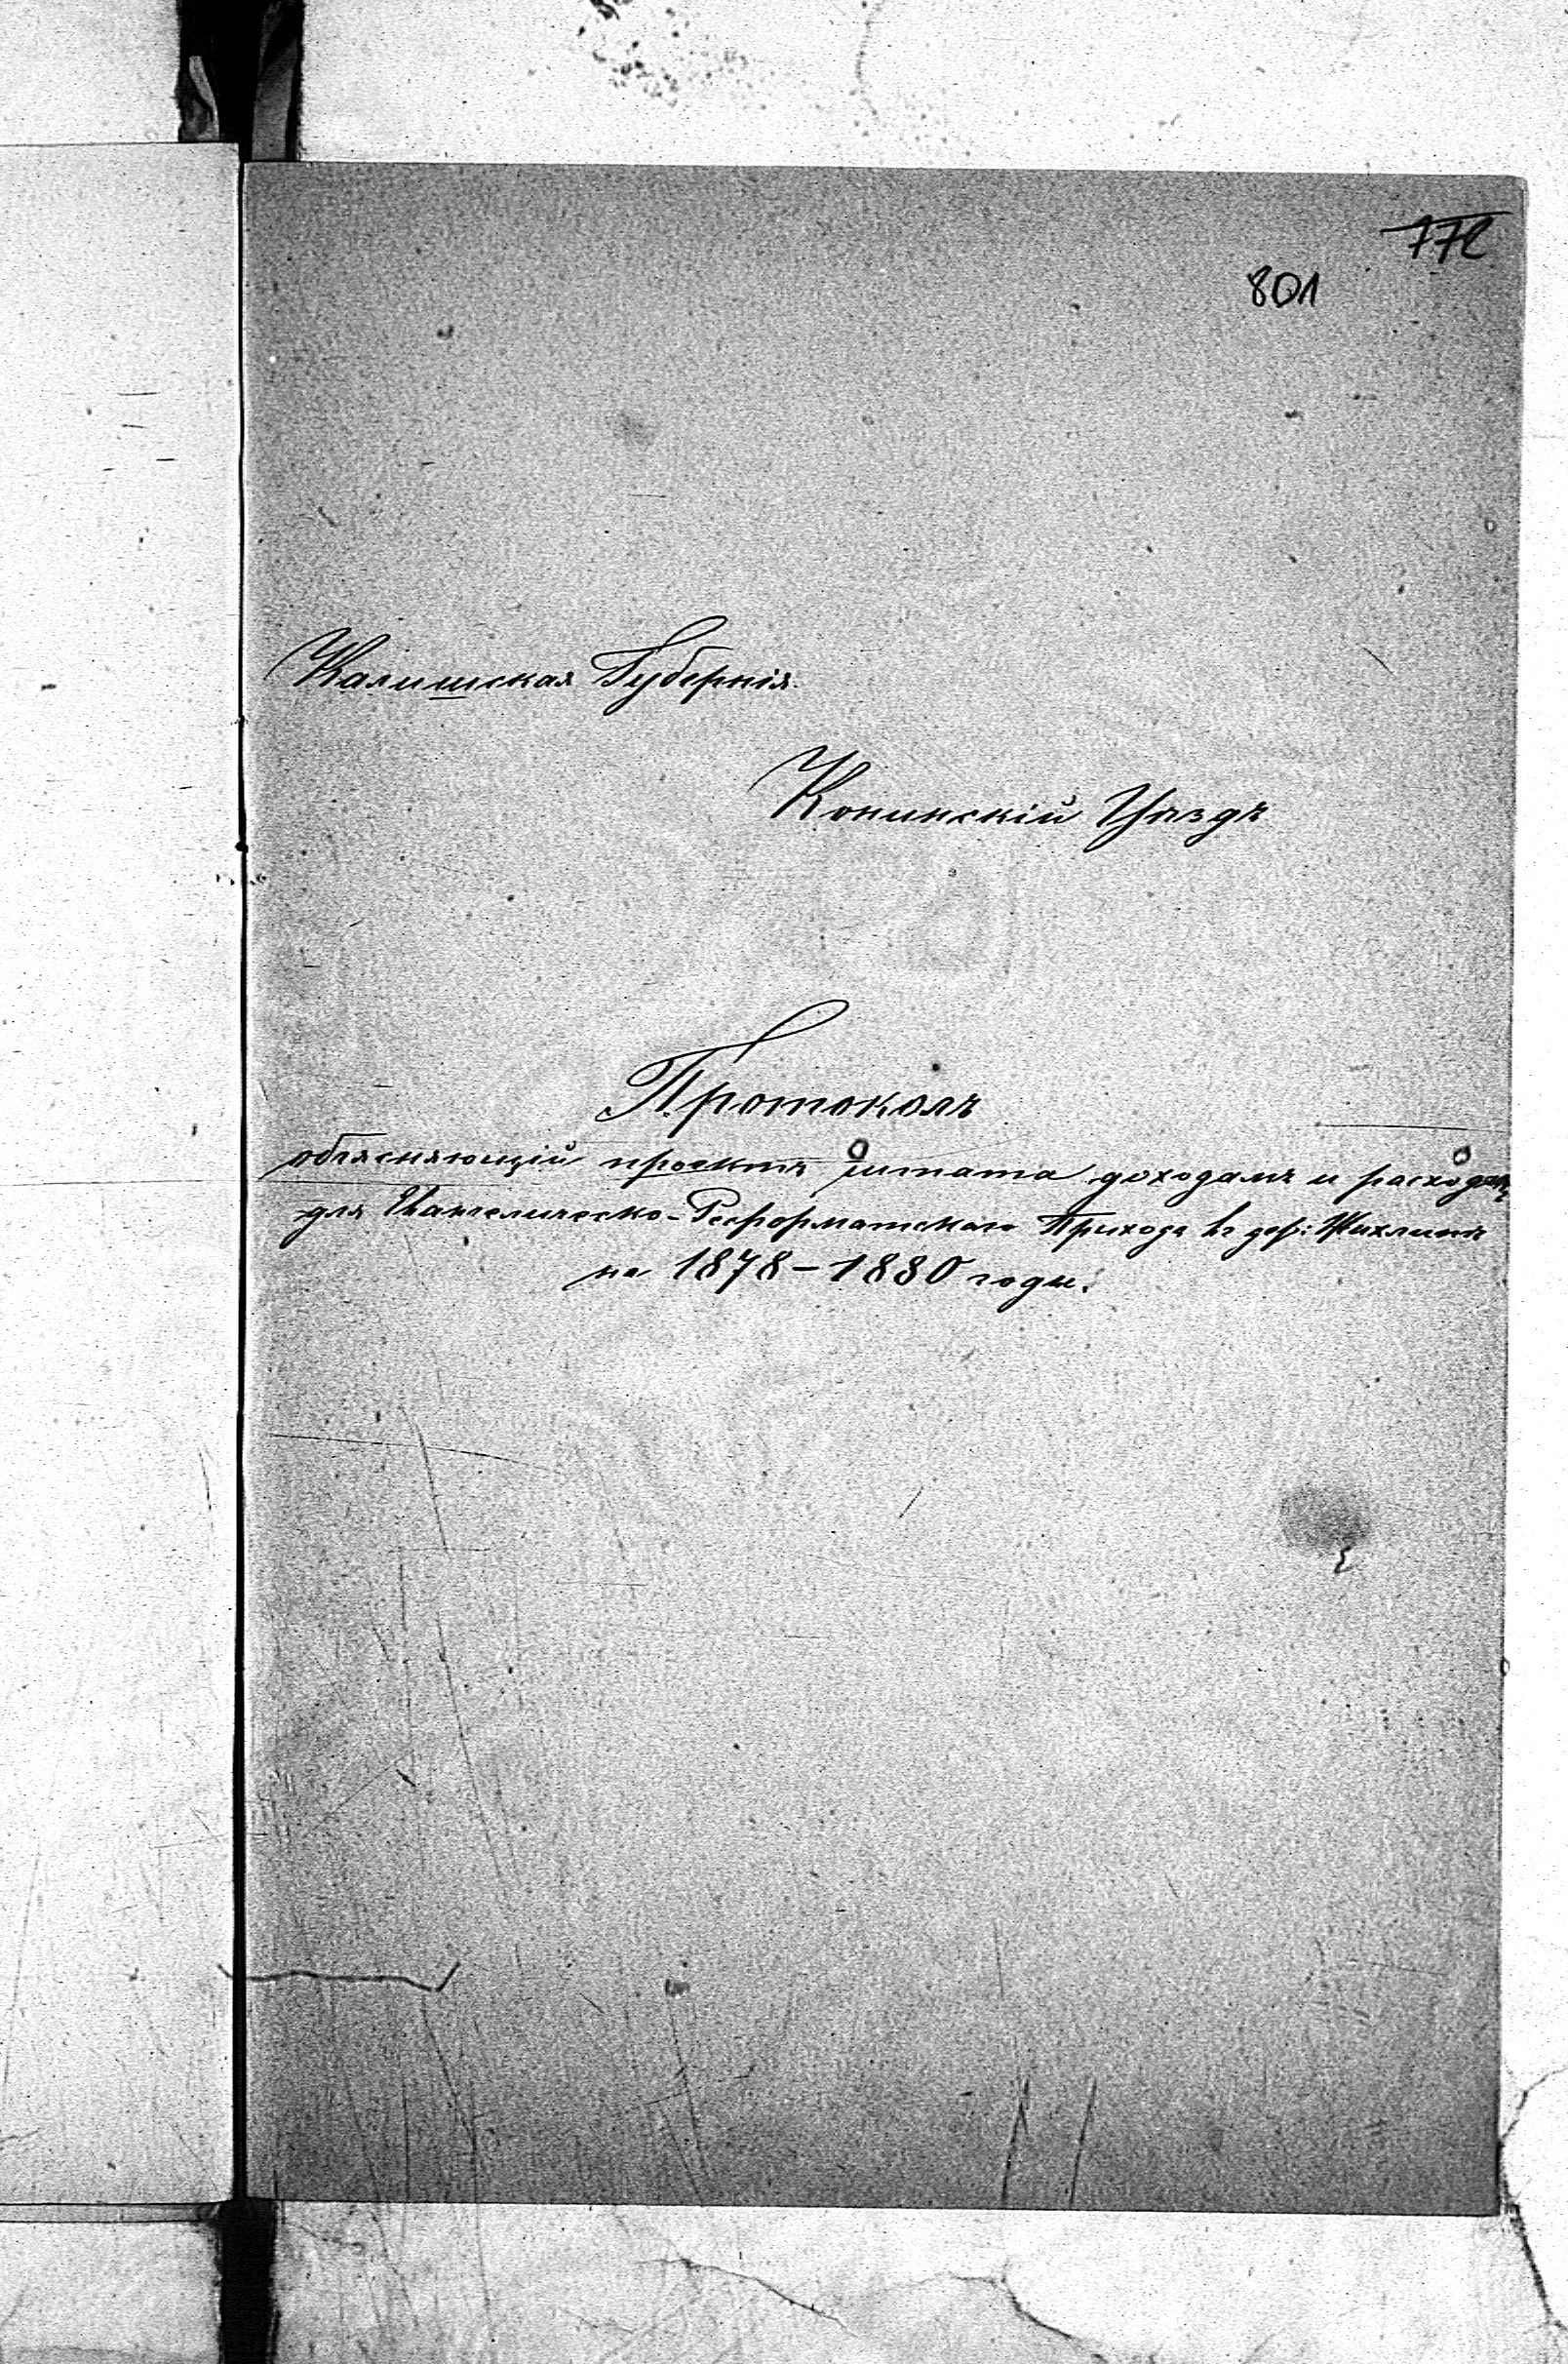 772
801
Калишская Губернія.
Конинскій Уѣздъ
Протоколъ
объясняющій проектъ штата доходамъ и расходамъ
для Евангелическо-Реформатскаго Прихода въ дер: Жихлинѣ
на 1878-1880 годы.